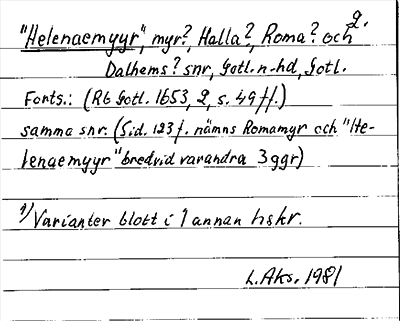 "Helenaemyyr", myr?, Halla?, Roma? och 2.
Dalhems? snr, Gotl. n-hd, Gotl.
Forts.: (Rb Gotl. 1653, 2, s. 49 ff.)
samma snr. (Sid. 123 f. nämns Romamyr och "He-
lenaemyyr" bredvid varandra 3 ggr)
2/ Varianter blott i 1 annan hskr.
L. Aks. 1981